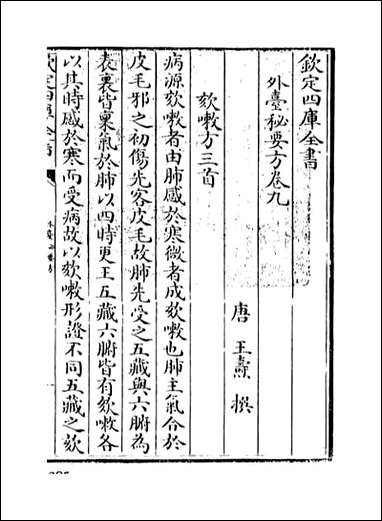 欽定四庫全書
外臺秘要方卷九
唐 王燾 撰
欬嗽方三首
病源欬嗽者由肺感於寒微者成欬嗽也肺主氣合於
皮毛邪之初傷先客皮毛故肺先受之五藏與六腑為
表裏皆稟氣於肺以四時更王五藏六腑皆有欬嗽各
以其時感於寒而受病故以欬嗽形證不同五藏之欬
欽定四庫全書